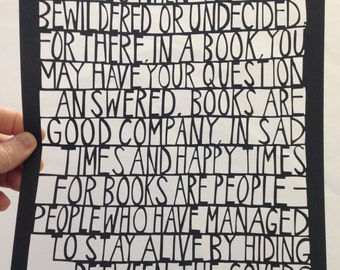 BEWILDERED OR UNDECIDED.
FOR THERE, IN A BOOK, YOU
MAY HAVE YOUR QUESTION
ANSWERED. BOOKS ARE
GOOD COMPANY, IN SAD
TIMES AND HAPPY TIMES
FOR BOOKS ARE PEOPLE –
PEOPLE WHO HAVE MANAGED
TO STAY ALIVE BY HIDING
BETWEEN THE COVERS